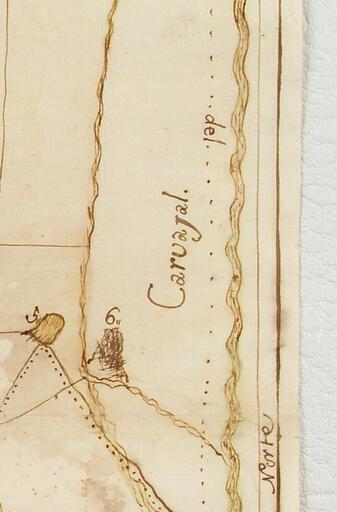 del.
Carvajal.
5.
6.
Norte